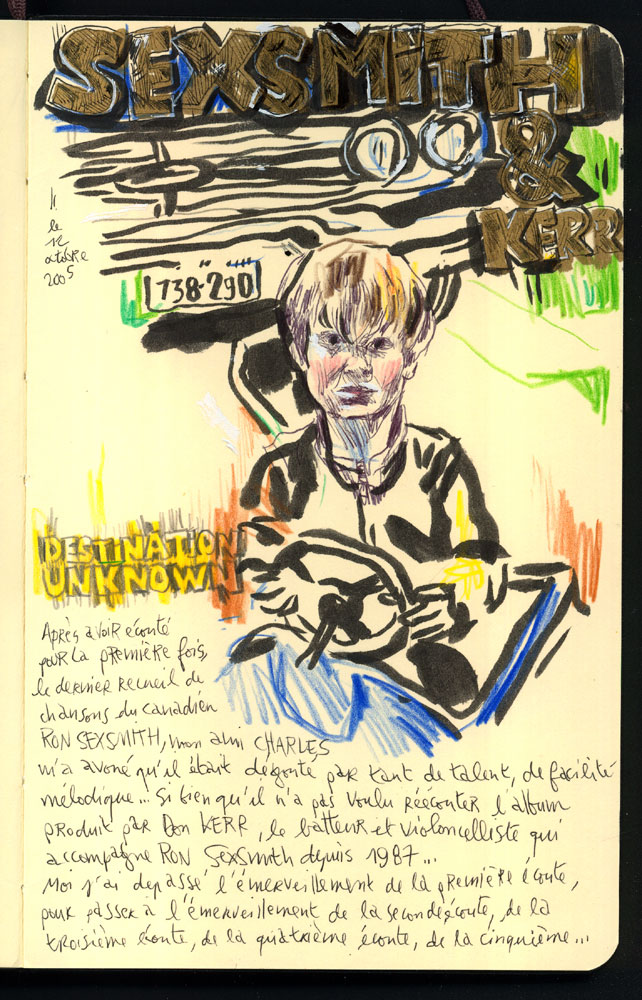 SEXSMITH
&
KERR
le
12
octobre
2005
738-290
DESTINATION
UNKNOWN
Après avoir écouté
pour la première fois,
le dernier recueil de
chansons du canadien
RON SEXSMITH, mon ami CHARLES
m'a avoué qu'il était dégoûté par tant de talent, de facilité
mélodique... Si bien qu'il n'a pas voulu réécouter l'album
produit par Don KERR, le batteur et violoncelliste qui
accompagne RON Sexsmith depuis 1987...
Moi j'ai depassé l'émerveillement de la première écoute,
pour passer à l'émerveillement de la seconde écoute, de la
troisième écoute, de la quatrième écoute, de la cinquième...